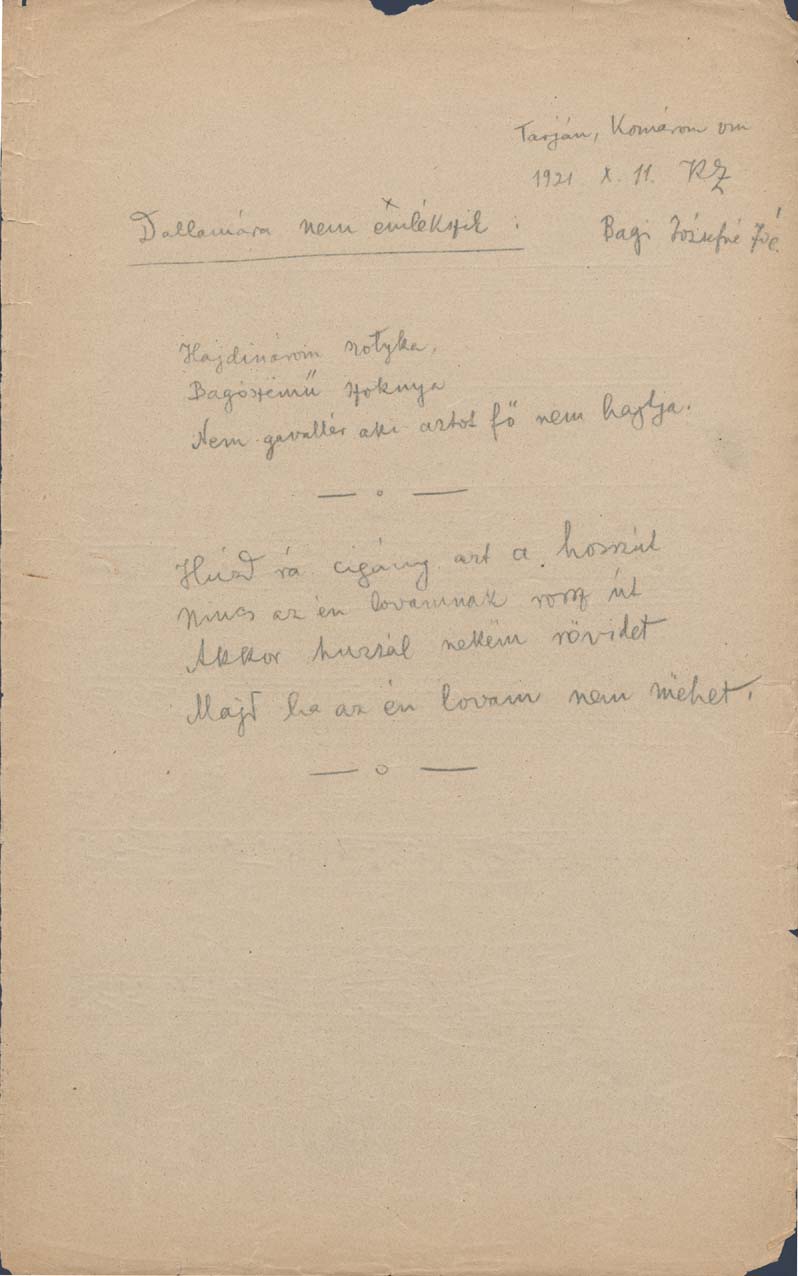 Tarján, Komárom vm
1921 X. 11. KZ
Dallamára nem emlékszik : Bagi Józsefné
Hajdinárom szotyka,
Bagószémű szoknya
Nem gavallér aki asztot fő nem hajtja.
Húzd rá cigány azt a hosszút
Nincs az én lovamnak rossz út
Akkor huzzál nekëm rövidet
Majd ha az én lovam nem mëhet.